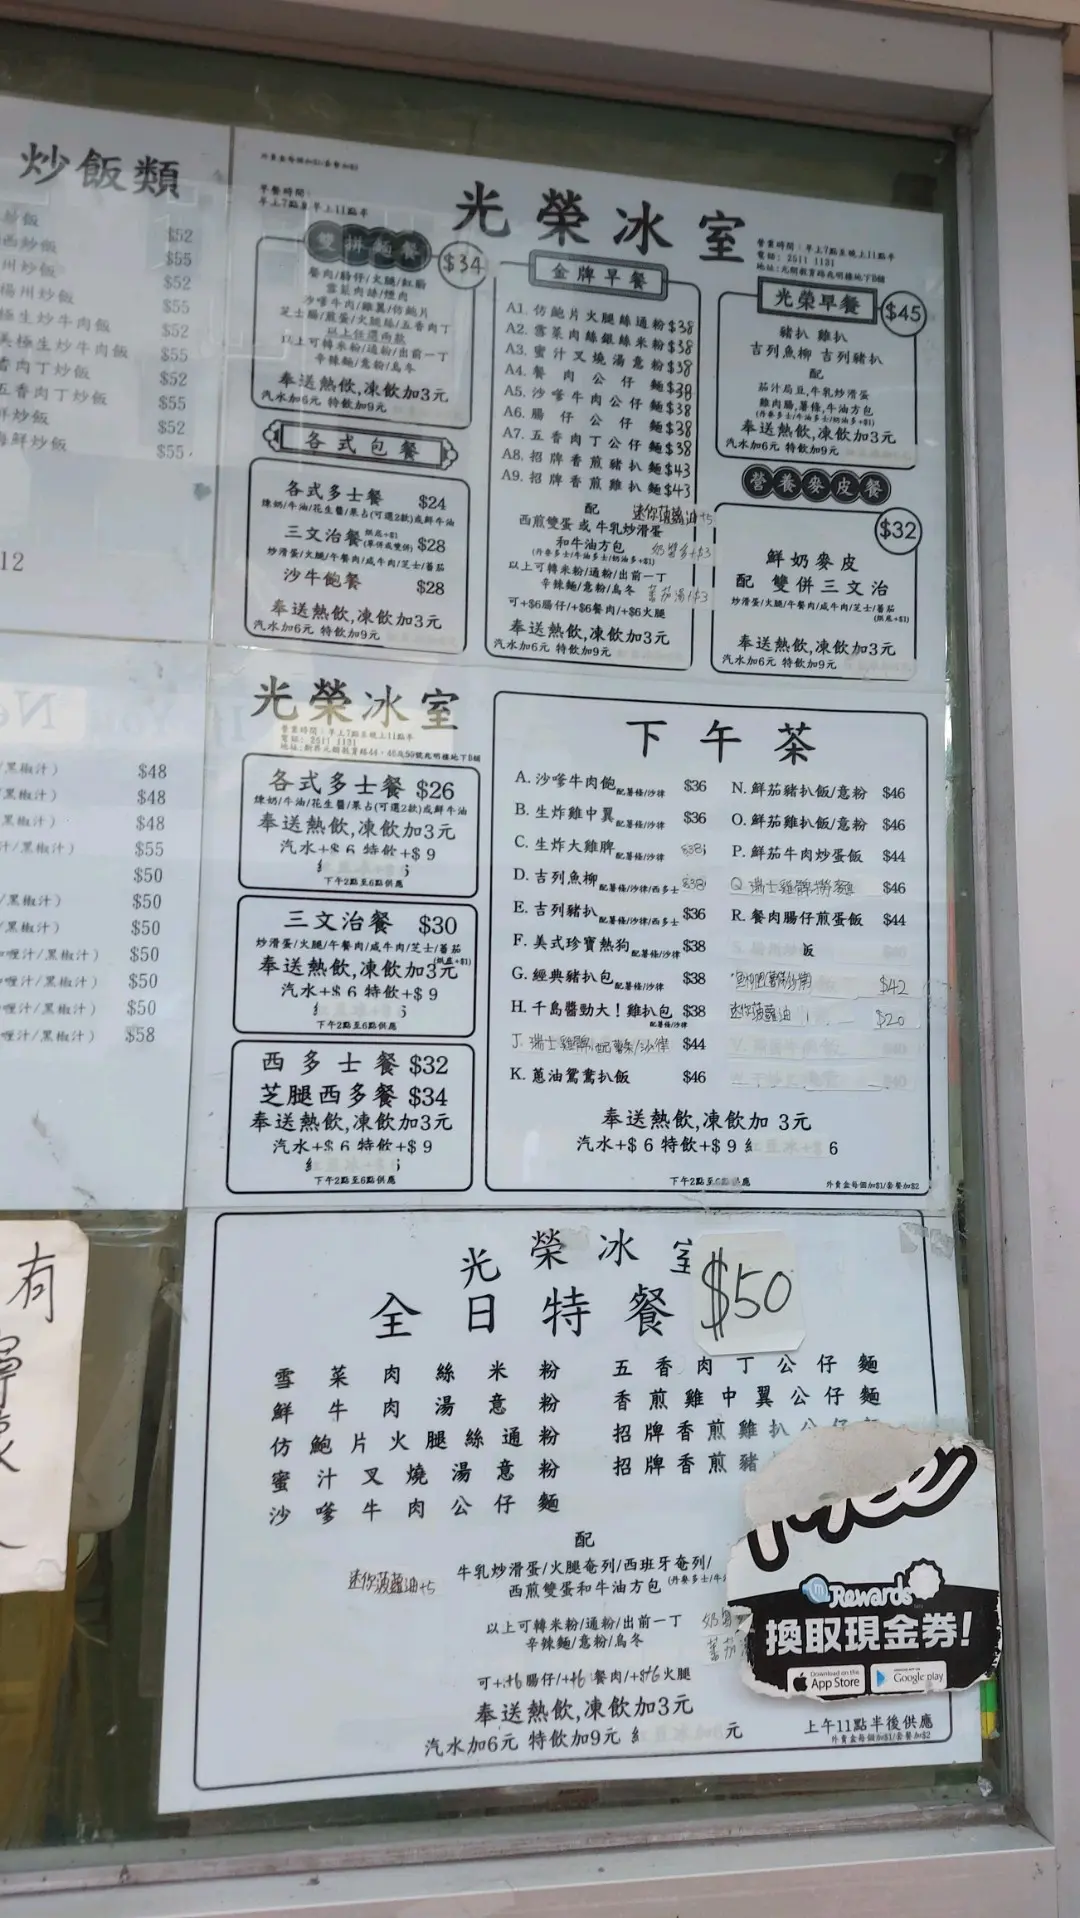 炒飯類
炒飯
$52
西炒飯
$55
州炒飯
$52
揚州炒飯
$55
極生炒牛肉飯
$52
美極生炒牛肉飯
$55
香肉丁炒飯
$52
五香肉丁炒飯
$55
鮮炒飯
$52
海鮮炒飯
$55
12
/黑椒汁) $48
/黑椒汁) $48
/黑椒汁) $48
汁/黑椒汁) $55
$50
/黑椒汁) $50
/黑椒汁) $50
喱汁/黑椒汁) $50
喱汁/黑椒汁) $50
喱汁/黑椒汁) $50
喱汁/黑椒汁) $58
有
外賣盒每個加$1/套餐加$2
早餐時間:
早上7點至早上11點半
光榮冰室
營業時間:早上7點至晚上11點半
電話: 2511 1131
雙拼麵餐
$34
餐肉/腸仔/火腿/紅腸
雪菜肉絲/煙肉
沙嗲牛肉/雞翼/仿鮑片
芝士腸/煎蛋/火腿絲/五香肉丁
以上任選兩款
以上可轉米粉/通粉/出前一丁
辛辣麵/意粉/烏冬
奉送熱飲,凍飲加3元
汽水加6元 特飲加9元
各式包餐
各式多士餐 $24
煉奶/牛油/花生醬/果占(可選2款)或鮮牛油
三文治餐 烘底+$1 (單併或雙併) $28
炒滑蛋/火腿/午餐肉/咸牛肉/芝士/蕃茄
沙牛飽餐 $28
奉送熱飲,凍飲加3元
汽水加6元 特飲加9元
金牌早餐
A1. 仿鮑片火腿絲通粉 $38
A2. 雪菜肉絲銀絲米粉 $38
A3. 蜜汁叉燒湯意粉 $38
A4. 餐肉公仔麵 $38
A5. 沙嗲牛肉公仔麵 $38
A6. 腸仔公仔麵 $38
A7. 五香肉丁公仔麵 $38
A8. 招牌香煎豬扒麵 $43
A9. 招牌香煎雞扒麵 $43
配 迷你菠蘿油+5
西煎雙蛋 或 牛乳炒滑蛋
和牛油方包
(丹麥多士/牛油多士/奶油多+$1) 奶醬多+$3
以上可轉米粉/通粉/出前一丁
辛辣麵/意粉/烏冬 蕃茄湯+$3
可+$6腸仔/+$6餐肉/+$6火腿
奉送熱飲,凍飲加3元
汽水加6元 特飲加9元
光榮早餐
$45
豬扒 雞扒
吉列魚柳 吉列豬扒
配
茄汁焗豆,牛乳炒滑蛋
雞肉腸,薯條,牛油方包
(丹麥多士/牛油多士/奶油多+$1)
奉送熱飲,凍飲加3元
汽水加6元 特飲加9元
營養麥皮餐
$32
鮮奶麥皮
配 雙併三文治
炒滑蛋/火腿/午餐肉/咸牛肉/芝士/蕃茄
(烘底+$1)
奉送熱飲,凍飲加3元
汽水加6元 特飲加9元
光榮冰室
營業時間:早上7點至晚上11點半
電話: 2511 1131
各式多士餐 $26
煉奶/牛油/花生醬/果占(可選2款)或鮮牛油
奉送熱飲,凍飲加3元
汽水+$ 6 特飲+$ 9
下午2點至6點供應
三文治餐 $30
炒滑蛋/火腿/午餐肉/咸牛肉/芝士/蕃茄
(烘底+$1)
奉送熱飲,凍飲加3元
汽水+$ 6 特飲+$ 9
6
下午2點至6點供應
西多士餐 $32
芝腿西多餐 $34
奉送熱飲,凍飲加3元
汽水+$ 6 特飲+$ 9
下午2點至6點供應
下午茶
A. 沙嗲牛肉飽 配薯條/沙律 $36
B. 生炸雞中翼 配薯條/沙律 $36
C. 生炸大雞脾 配薯條/沙律 $38
D. 吉列魚柳 配薯條/沙律/西多士 $38
E. 吉列豬扒 配薯條/沙律/西多士 $36
F. 美式珍寶熱狗 配薯條/沙律 $38
G. 經典豬扒包 配薯條/沙律 $38
H. 千島醬勁大!雞扒包 配薯條/沙律 $38
J. 瑞士雞髀配薯條/沙律 $44
K. 蔥油鴛鴦扒飯 $46
N. 鮮茄豬扒飯/意粉 $46
O. 鮮茄雞扒飯/意粉 $46
P. 鮮茄牛肉炒蛋飯 $44
Q. 瑞士雞髀撈麵 $46
R. 餐肉腸仔煎蛋飯 $44
飯
$42
迷你菠蘿油 $20
奉送熱飲,凍飲加 3元
汽水+$ 6 特飲+$ 9 6
下午2點至6點供應
外賣盒每個加$1/套餐加$2
光榮冰室
全日特餐 $50
雪菜肉絲米粉
鮮牛肉湯意粉
仿鮑片火腿絲通粉
蜜汁叉燒湯意粉
沙嗲牛肉公仔麵
五香肉丁公仔麵
香煎雞中翼公仔麵
招牌香煎雞扒公仔
招牌香煎豬
配
牛乳炒滑蛋/火腿奄列/西班牙奄列/
迷你菠蘿油+5
西煎雙蛋和牛油方包 (丹麥多士/牛
以上可轉米粉/通粉/出前一丁
辛辣麵/意粉/烏冬
可+$6腸仔/+$6餐肉/+$6火腿
奉送熱飲,凍飲加3元
汽水加6元 特飲加9元 元
上午11點半後供應
外賣盒每個加$1/套餐加$2
Rewards
換取現金券!
Download on the
App Store
Google play